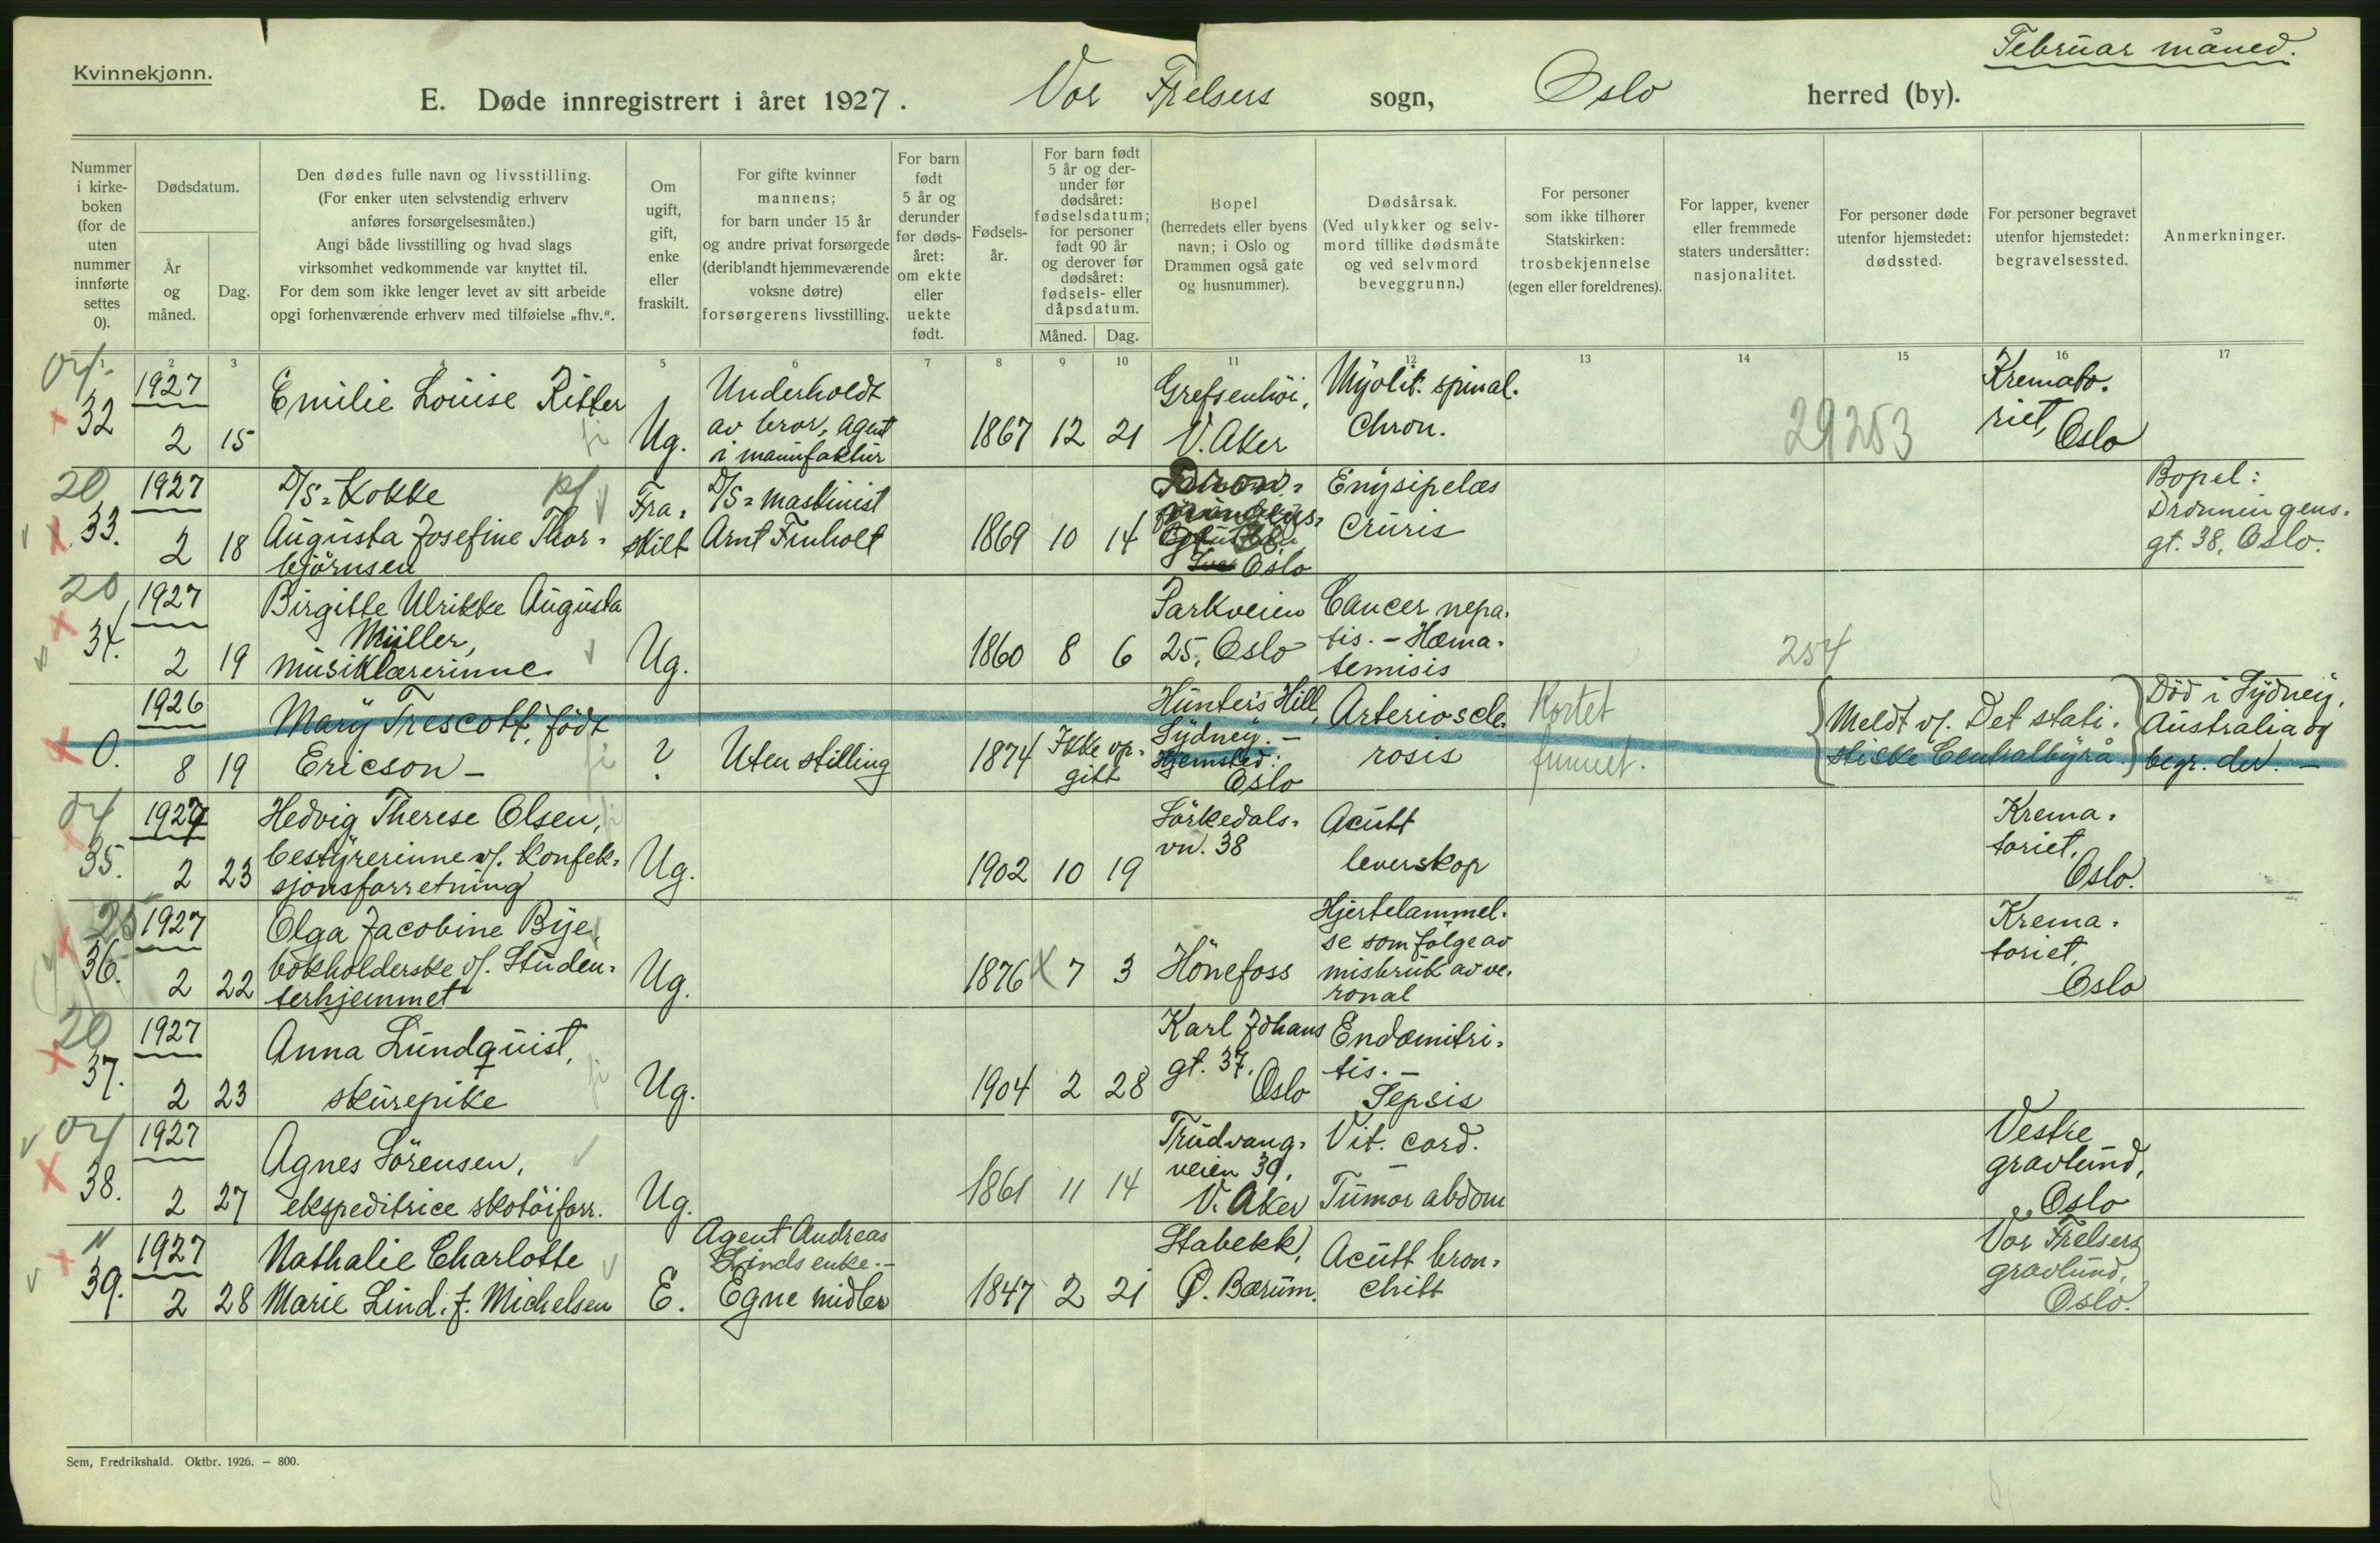 Februar måned.
Kvinnekjønn.
E. Døde innregistrert i året 1927. Vor Frelsers sogn, Oslo herred (by).
Nummer i kirke-boken (for de uten nummer innførte settes 0).
Dødsdatum.
År og måned.
Dag.
Den dødes fulle navn og livsstilling.
(For enker uten selvstendig erhverv
anføres forsørgelsesmåten.)
Angi både livsstilling og hvad slags
virksomhet vedkommende var knyttet til.
For dem som ikke lenger levet av sitt arbeide
opgi forhenværende erhverv med tilføielse „fhv.".
Om ugift, gift, enke eller fraskilt.
For gifte kvinner
mannens;
for barn under 15 år
og andre privat forsørgede
(deriblandt hjemmeværende
voksne døtre)
forsørgerens livsstilling.
For barn født 5 år og derunder før døds-året: om ekte eller uekte født.
Fødsels-år.
For barn født 5 år og der-under før dødsåret: fødselsdatum; for personer født 90 år og derover før dødsåret: fødsels- eller dåpsdatum.
Måned. Dag.
Bopel
(herredets eller byens
navn; i Oslo og
Drammen også gate
og husnummer).
Dødsårsak.
(Ved ulykker og selv-
mord tillike dødsmåte
og ved selvmord
beveggrunn.)
For personer
som ikke tilhører
Statskirken:
trosbekjennelse
(egen eller foreldrenes).
For lapper, kvener
eller fremmede
staters undersåtter:
nasjonalitet.
For personer døde
utenfor hjemstedet:
dødssted.
For personer begravet
utenfor hjemstedet:
begravelsessted.
Anmerkninger.
1 2 3 4 5 6 7 8 9 10 11 12 13 14 15 16 17
04
32
1927
2 15
Emilie Louise Ritter
Ug.
Underholdt
av bror, agent
i manufaktur
1867 12 21
Grefsenhöi,
V. Aker
Myolit. spinal.
Chron.
29253
Kremato-
riet, Oslo
20
33.
1927
2 18
D/S=Kokke
Augusta Josefine Thor-
björnsen
Fra-
skilt
D/S=maskinist
Arnt Finholt
1869 10 14
Oslo
Erysipelas
Cruris
Bopel:
Dronningens-
gt. 38, Oslo.
20
34.
1927
2 19
Birgitte Ulrikke Augusta
Müller,
musiklærerinne
Ug.
1860 8 6
Parkveien
25, Oslo
Cancer hepa-
tis. - Hæma-
temisis
254
0.
1926
8 19
Mary Trescott, födt
Ericson -
?
Uten stilling
1874
Ikke op-
gitt
Hunter's Hill,
Sydney. -
Hjemsted:
Oslo
Arterioscle-
rosis
Kortet
funnet.
Meldt v/. Det stati-
stiske Centralbyrå.
Död i Sydney,
Australia og
begr. der. -
04
35.
1927
2 23
Hedvig Therese Olsen,
bestyrerinne v/. Konfek-
sjonsforretning
Ug.
1902 10 19
Sörkedals-
vn. 38
Acutt
leverskop
Krema-
toriet,
Oslo.
25
36.
1927
2 22
Olga Jacobine Bye,
bokholderske v/. Studen-
terhjemmet
Ug.
1876 7 3
Hönefoss
Hjertelammel-
se som følge av
misbruk av ve-
ronal
Krema-
toriet,
Oslo
20
37.
1927
2 23
Anna Lundquist,
skurepike
Ug.
1904 2 28
Karl Johans
gt. 37,
Oslo
Endomitri-
tis. -
Sepsis
04
38.
1927
2 27
Agnes Sörensen,
ekspeditrice skotöiforr.
Ug.
1861 11 14
Trudvang-
veien 39,
V. Aker
Vit. cord.
Tumor abdom
Vestre
gravlund,
Oslo
39.
1927
2 28
Nathalie Charlotte
Marie Lind. f. Michelsen
E.
Agent Andreas
Linds enke. -
Egne midler
1847 2 21
Stabekk,
Ø. Bærum.
Acutt bron-
chitt
Vor Frelsers
gravlund,
Oslo.
Sem, Fredrikshald. Oktbr. 1926. — 800.